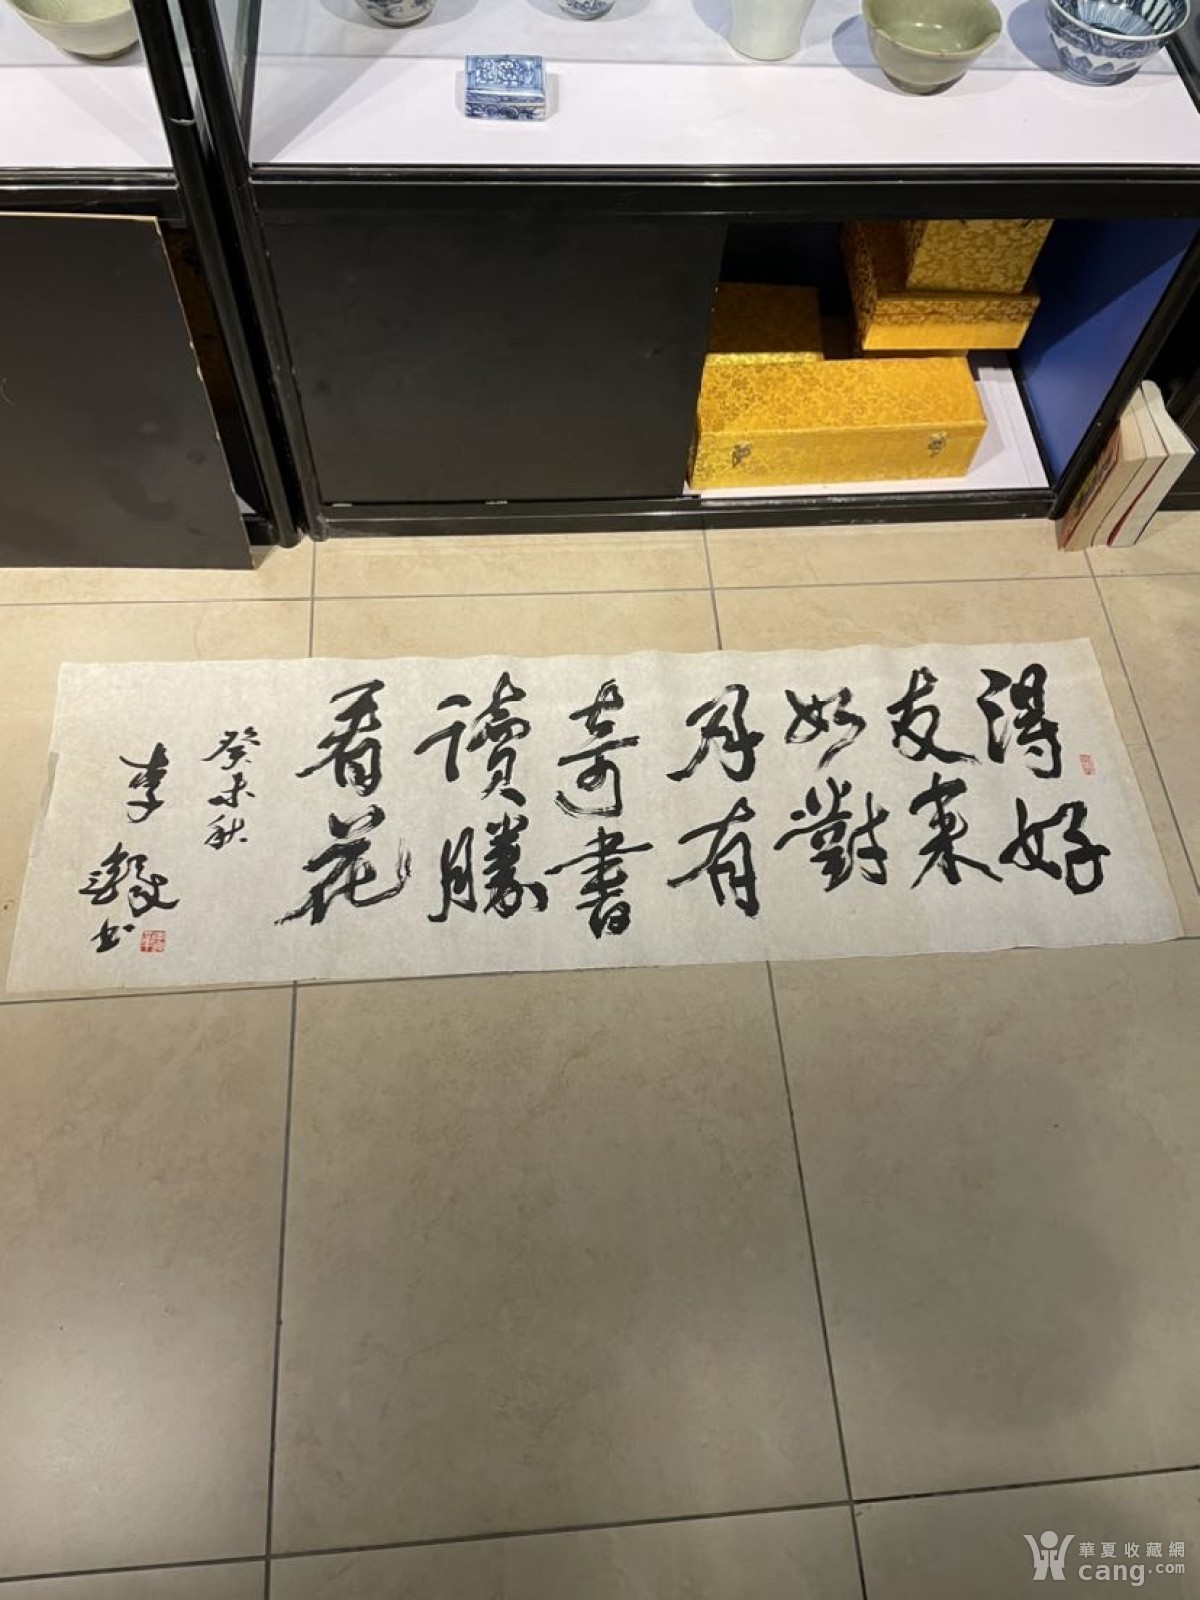 得好
友来
如對
月有
奇書
讀勝
看花
癸未秋
李
書
華夏收藏網
cang.com